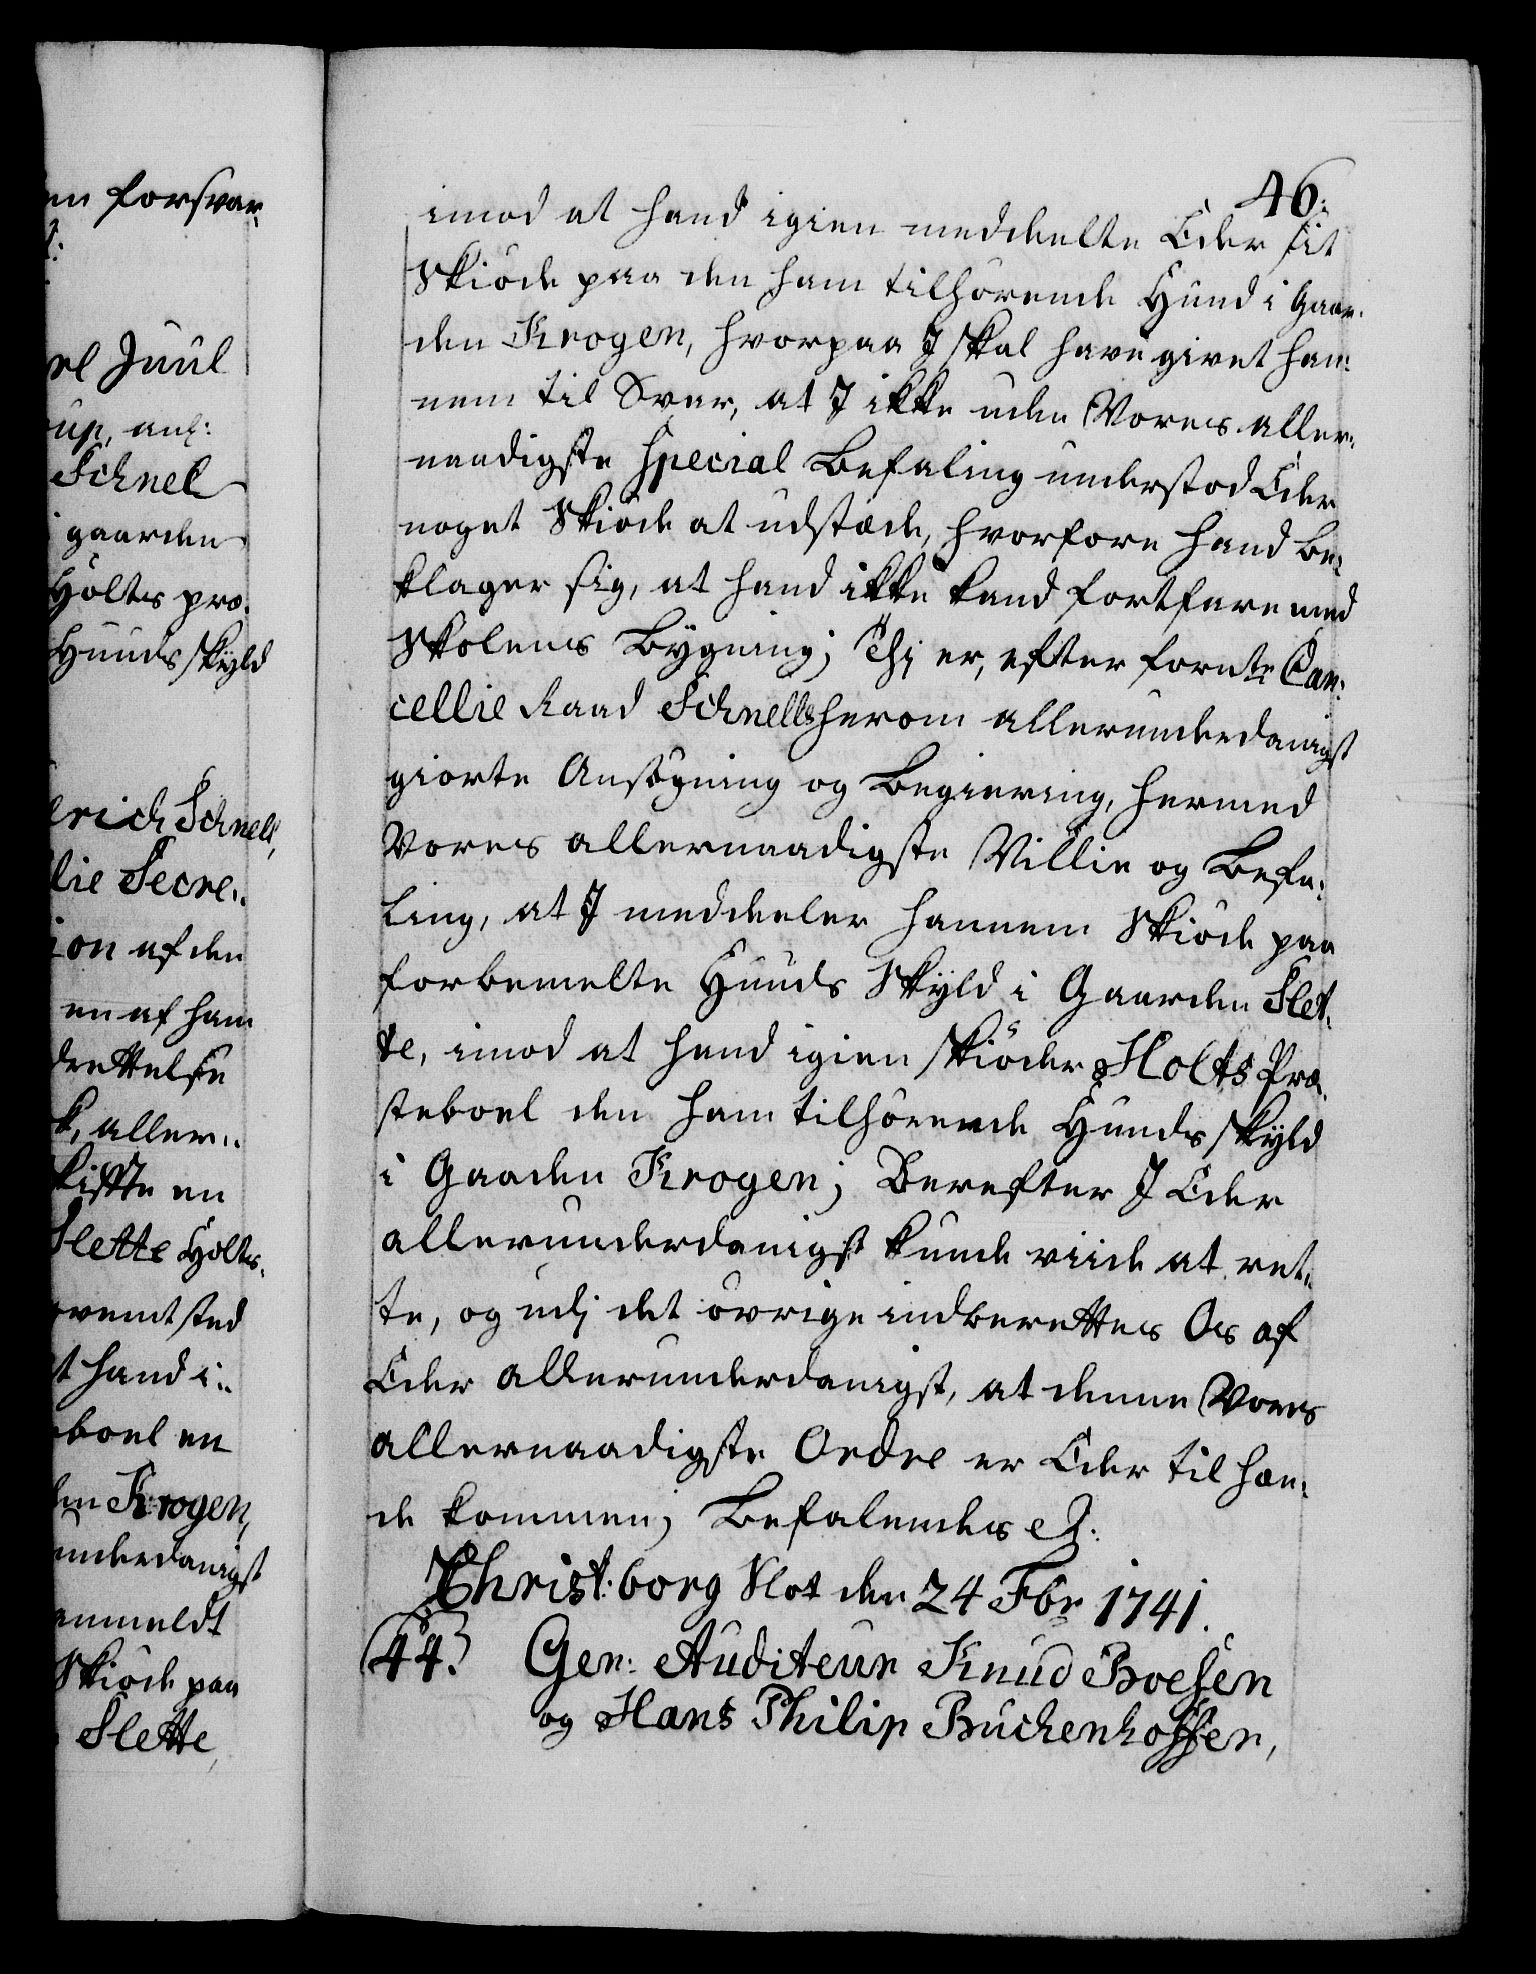 en forsvar¬
el Juul
up, anl:
Schnel
gaarden
Holts præ¬
Huuds skÿld
erich Schnell,
lie Secre¬
ion af den
en af ham
drettelse
k, aller¬
skiffte en
Slette Holts¬
nemt sted
t hand i¬
boel en
en Krogen,
underdanigst
anmeldt
Skiøde paa
Slette,
46.
imod at hand igien meddeelte Eder sit
Skiøde paa den ham tilhørende Hund i Gaar¬
den Krogen, hvorpaa J skal have givet han¬
nem til Svar, at J ikke uden Vores aller¬
naadigste Special Befaling understod Eder
noget Skiøde at udstæde, hvorfore hand be¬
klager sig, at hand ikke kand fortfare med
Skolens Bÿgning; Thi er, efter fornte Can¬
cellie Raad Schnells herom allerunderdanigst
giorte Ansøgning og Begiering, hermed
Vores allernaadigste Villie og Befa¬
ling, at J meddeeler hannem Skiøde paa
forbemelte Huuds Skÿld i Gaarden Slet¬
te, imod at hand igien skiøder Holts Præ¬
steboel den ham tilhørende Hunds skÿld
i Gaaden Krogen; Derefter J Eder
allerunderdanigst kunde viide at ret¬
te, og udj det øvrige indberettes Os af
Eder allerunderdanigst, at denne Vores
allernaadigste Ordre er Eder til hæn¬
de kommen; Befalendes etc:
Christ:borg Slot den 24 Fbr 1741.
44. Gen: Auditeur Knud Boesen
og Hans Philip Buchenhoffer,